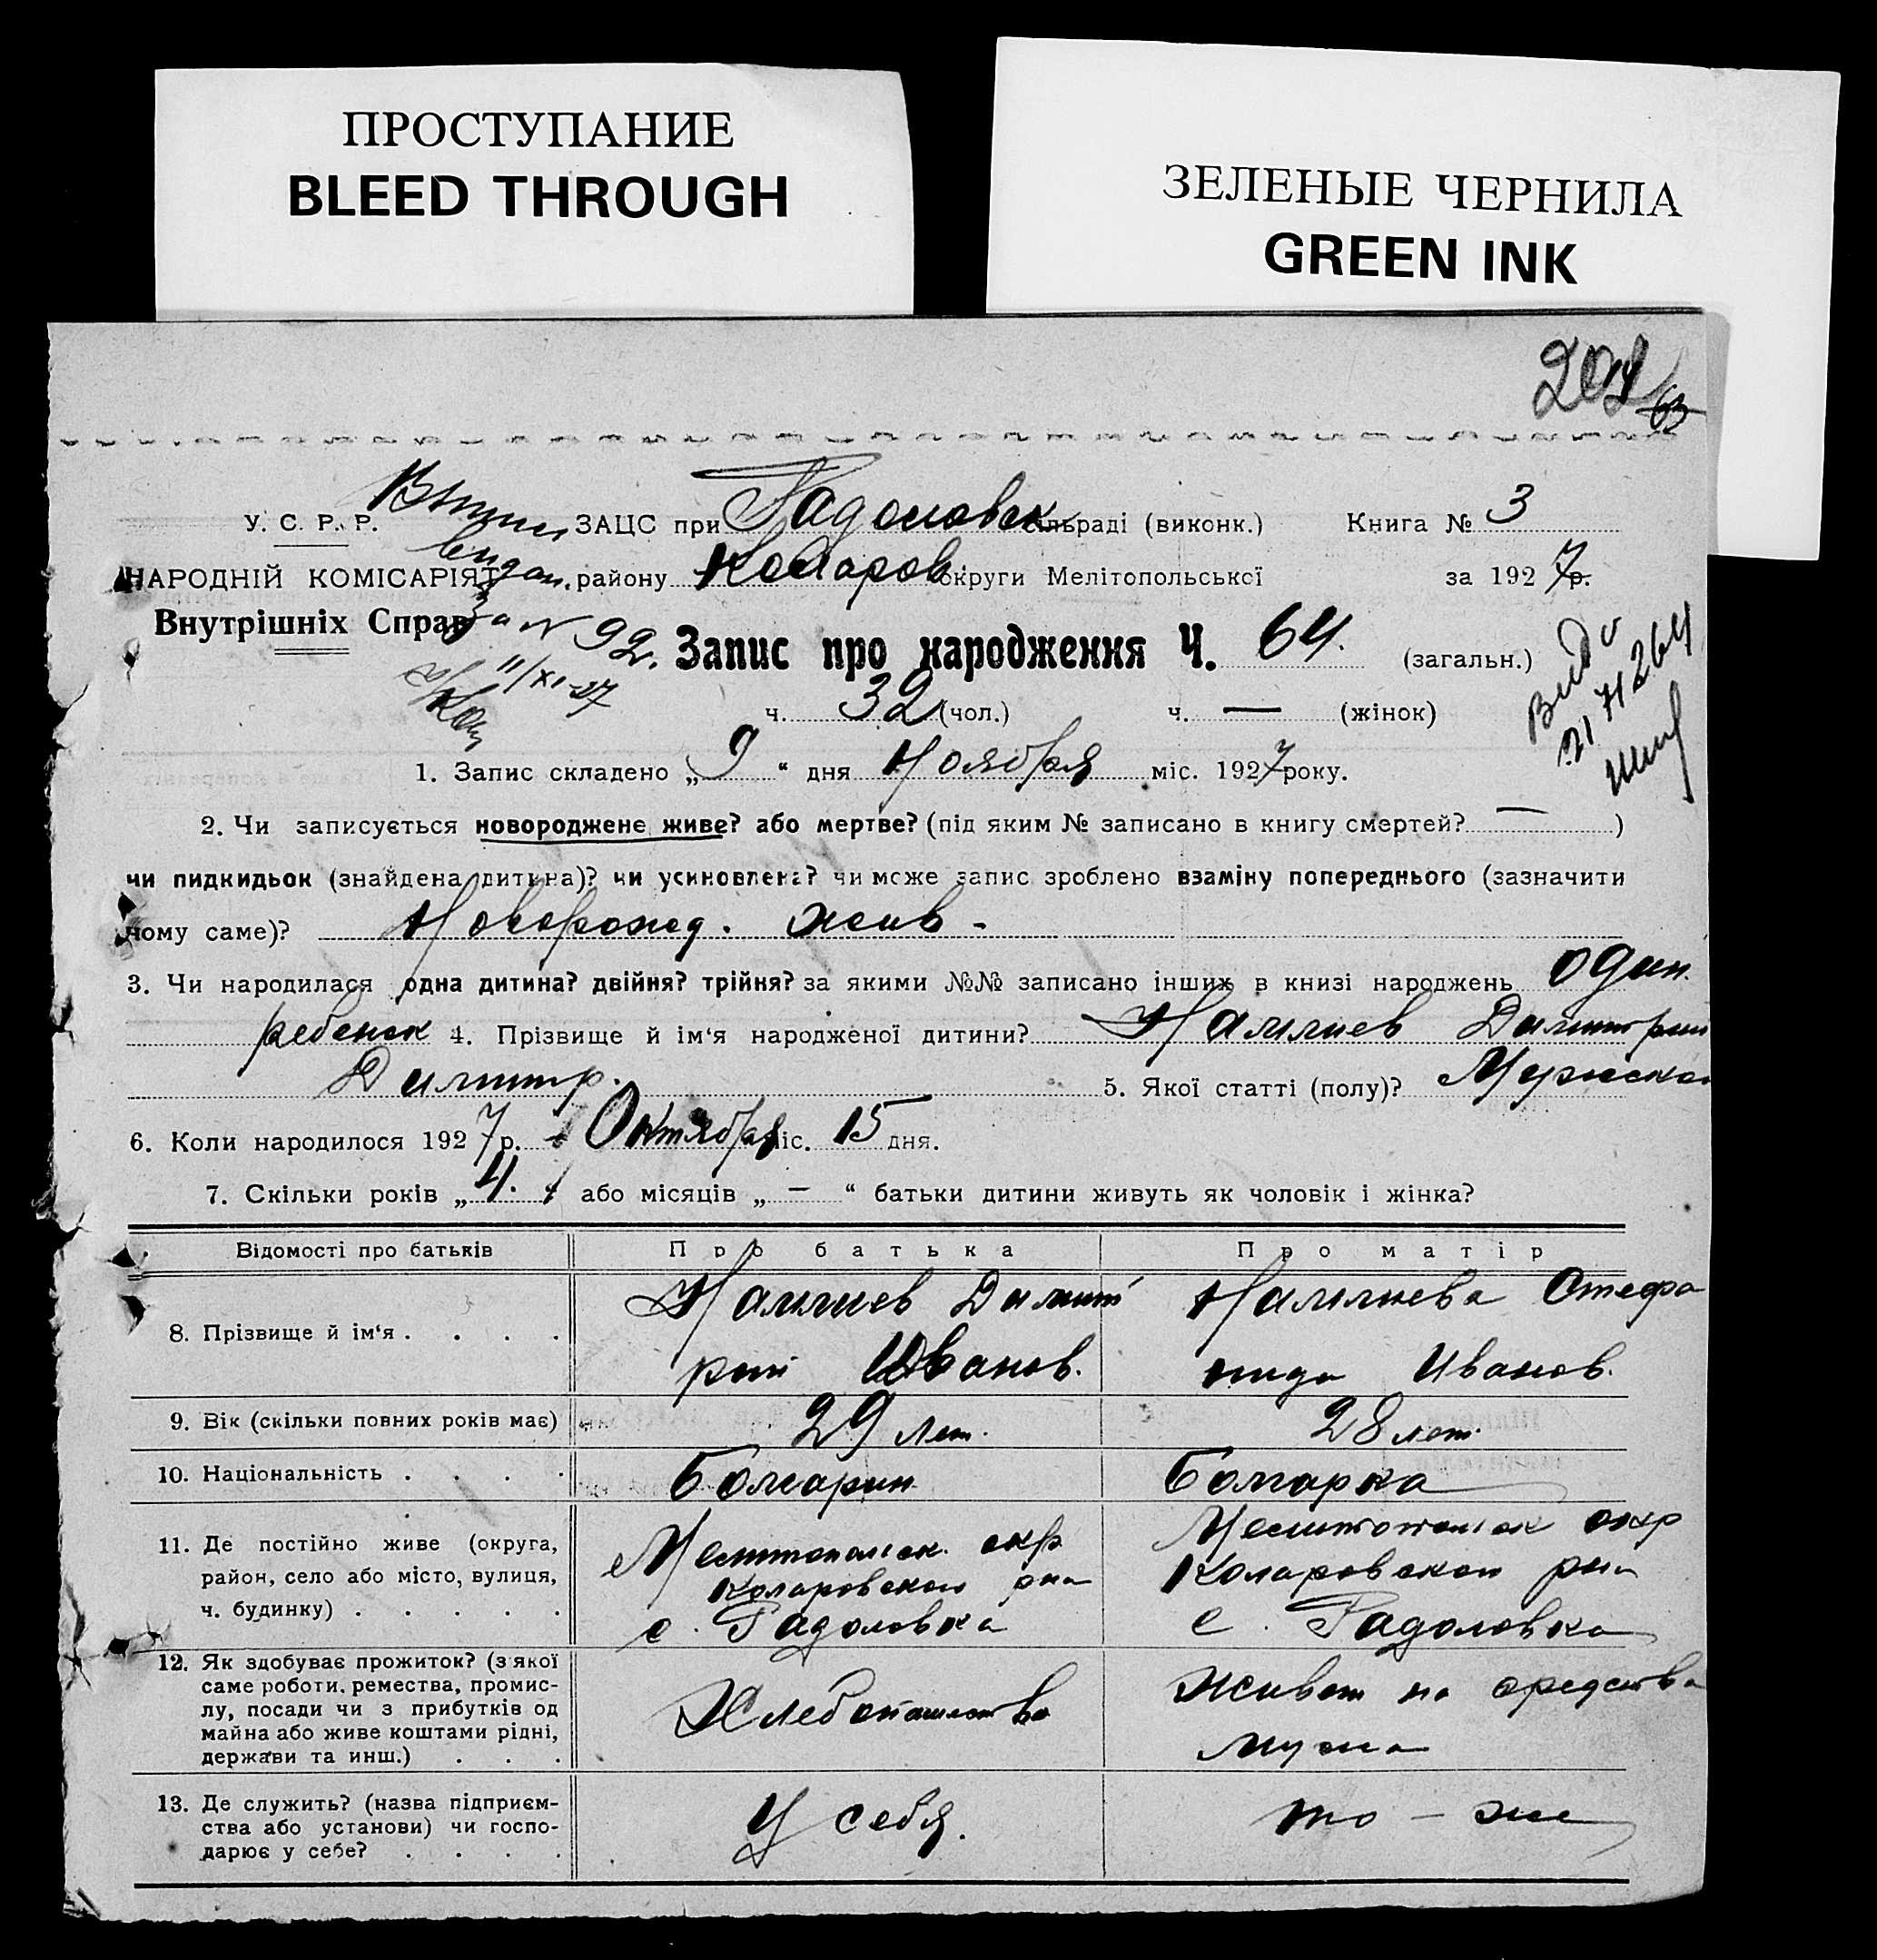 ПРОСТУПАНИЕ
BLEED THROUGH
ЗЕЛЕНЫЕ ЧЕРНИЛА
GREEN INK
У. С. Р. Р. ЗАЦС при Радоловск сільраді (виконк.) Книга № 3
НАРОДНІЙ КОМІСАРІЯТ району Коларов. округи Мелітопольської за 1927 р.
Внутрішніх Справ
за № 92.
11/XI-27
Запис про народження Ч. 64. (загальн.)
ч. 32 (чол.) ч. — (жінок)
1. Запис складено „9“ дня Ноября міс. 1927 року.
2. Чи записується новороджене живе? або мертве? (під яким № записано в книгу смертей? — )
чи пидкидьок (знайдена дитина)? чи усиновлена? чи може запис зроблено взаміну попереднього (зазначити
чому саме)? Новорожд. жив -
3. Чи народилася одна дитина? двійня? трійня? за якими №№ записано інших в книзі народжень один.
ребенок 4. Прізвище й ім‘я народженої дитини? Димитрий
Димитр. 5. Якої статті (полу)? Мужеска
6. Коли народилося 1927 р. Октября міс. 15 дня.
7. Скільки років „4.“ або місяців „ — “ батьки дитини живуть як чоловік і жінка?
Відомості про батьків Про батька Про матір
8. Прізвище й ім‘я . . . . Димит
рий Иванов. Стефа
нида Иванов.
9. Вік (скільки повних років має) 29 лет. 28 лет.
10. Національність . . . . Болгарин Болгарка
11. Де постійно живе (округа,
район, село або місто, вулиця,
ч. будинку) . . . . .
Мелитопольск. окр.
Коларовского рна
с. Радоловка
Мелитопольск окр
Коларовского рна
с. Радоловка
12. Як здобуває прожиток? (з якої
саме роботи, ремества, промис-
лу, посади чи з прибутків од
майна або живе коштами рідні,
держави та инш.) . . .
Хлебопашество
Живет на средства
мужа
13. Де служить? (назва підприєм-
ства або установи) чи госпо-
дарює у себе? . . . .
У себя.
то - же